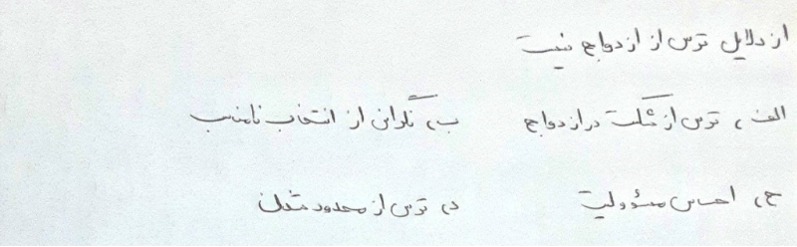 از دلایل ترس از ازدواج نیست
الف، ترس از شکست در ازدواج ب، نگرانی از انتخاب نامناسب
ج، احساس مسئوولیت د، ترس از محدود شدن